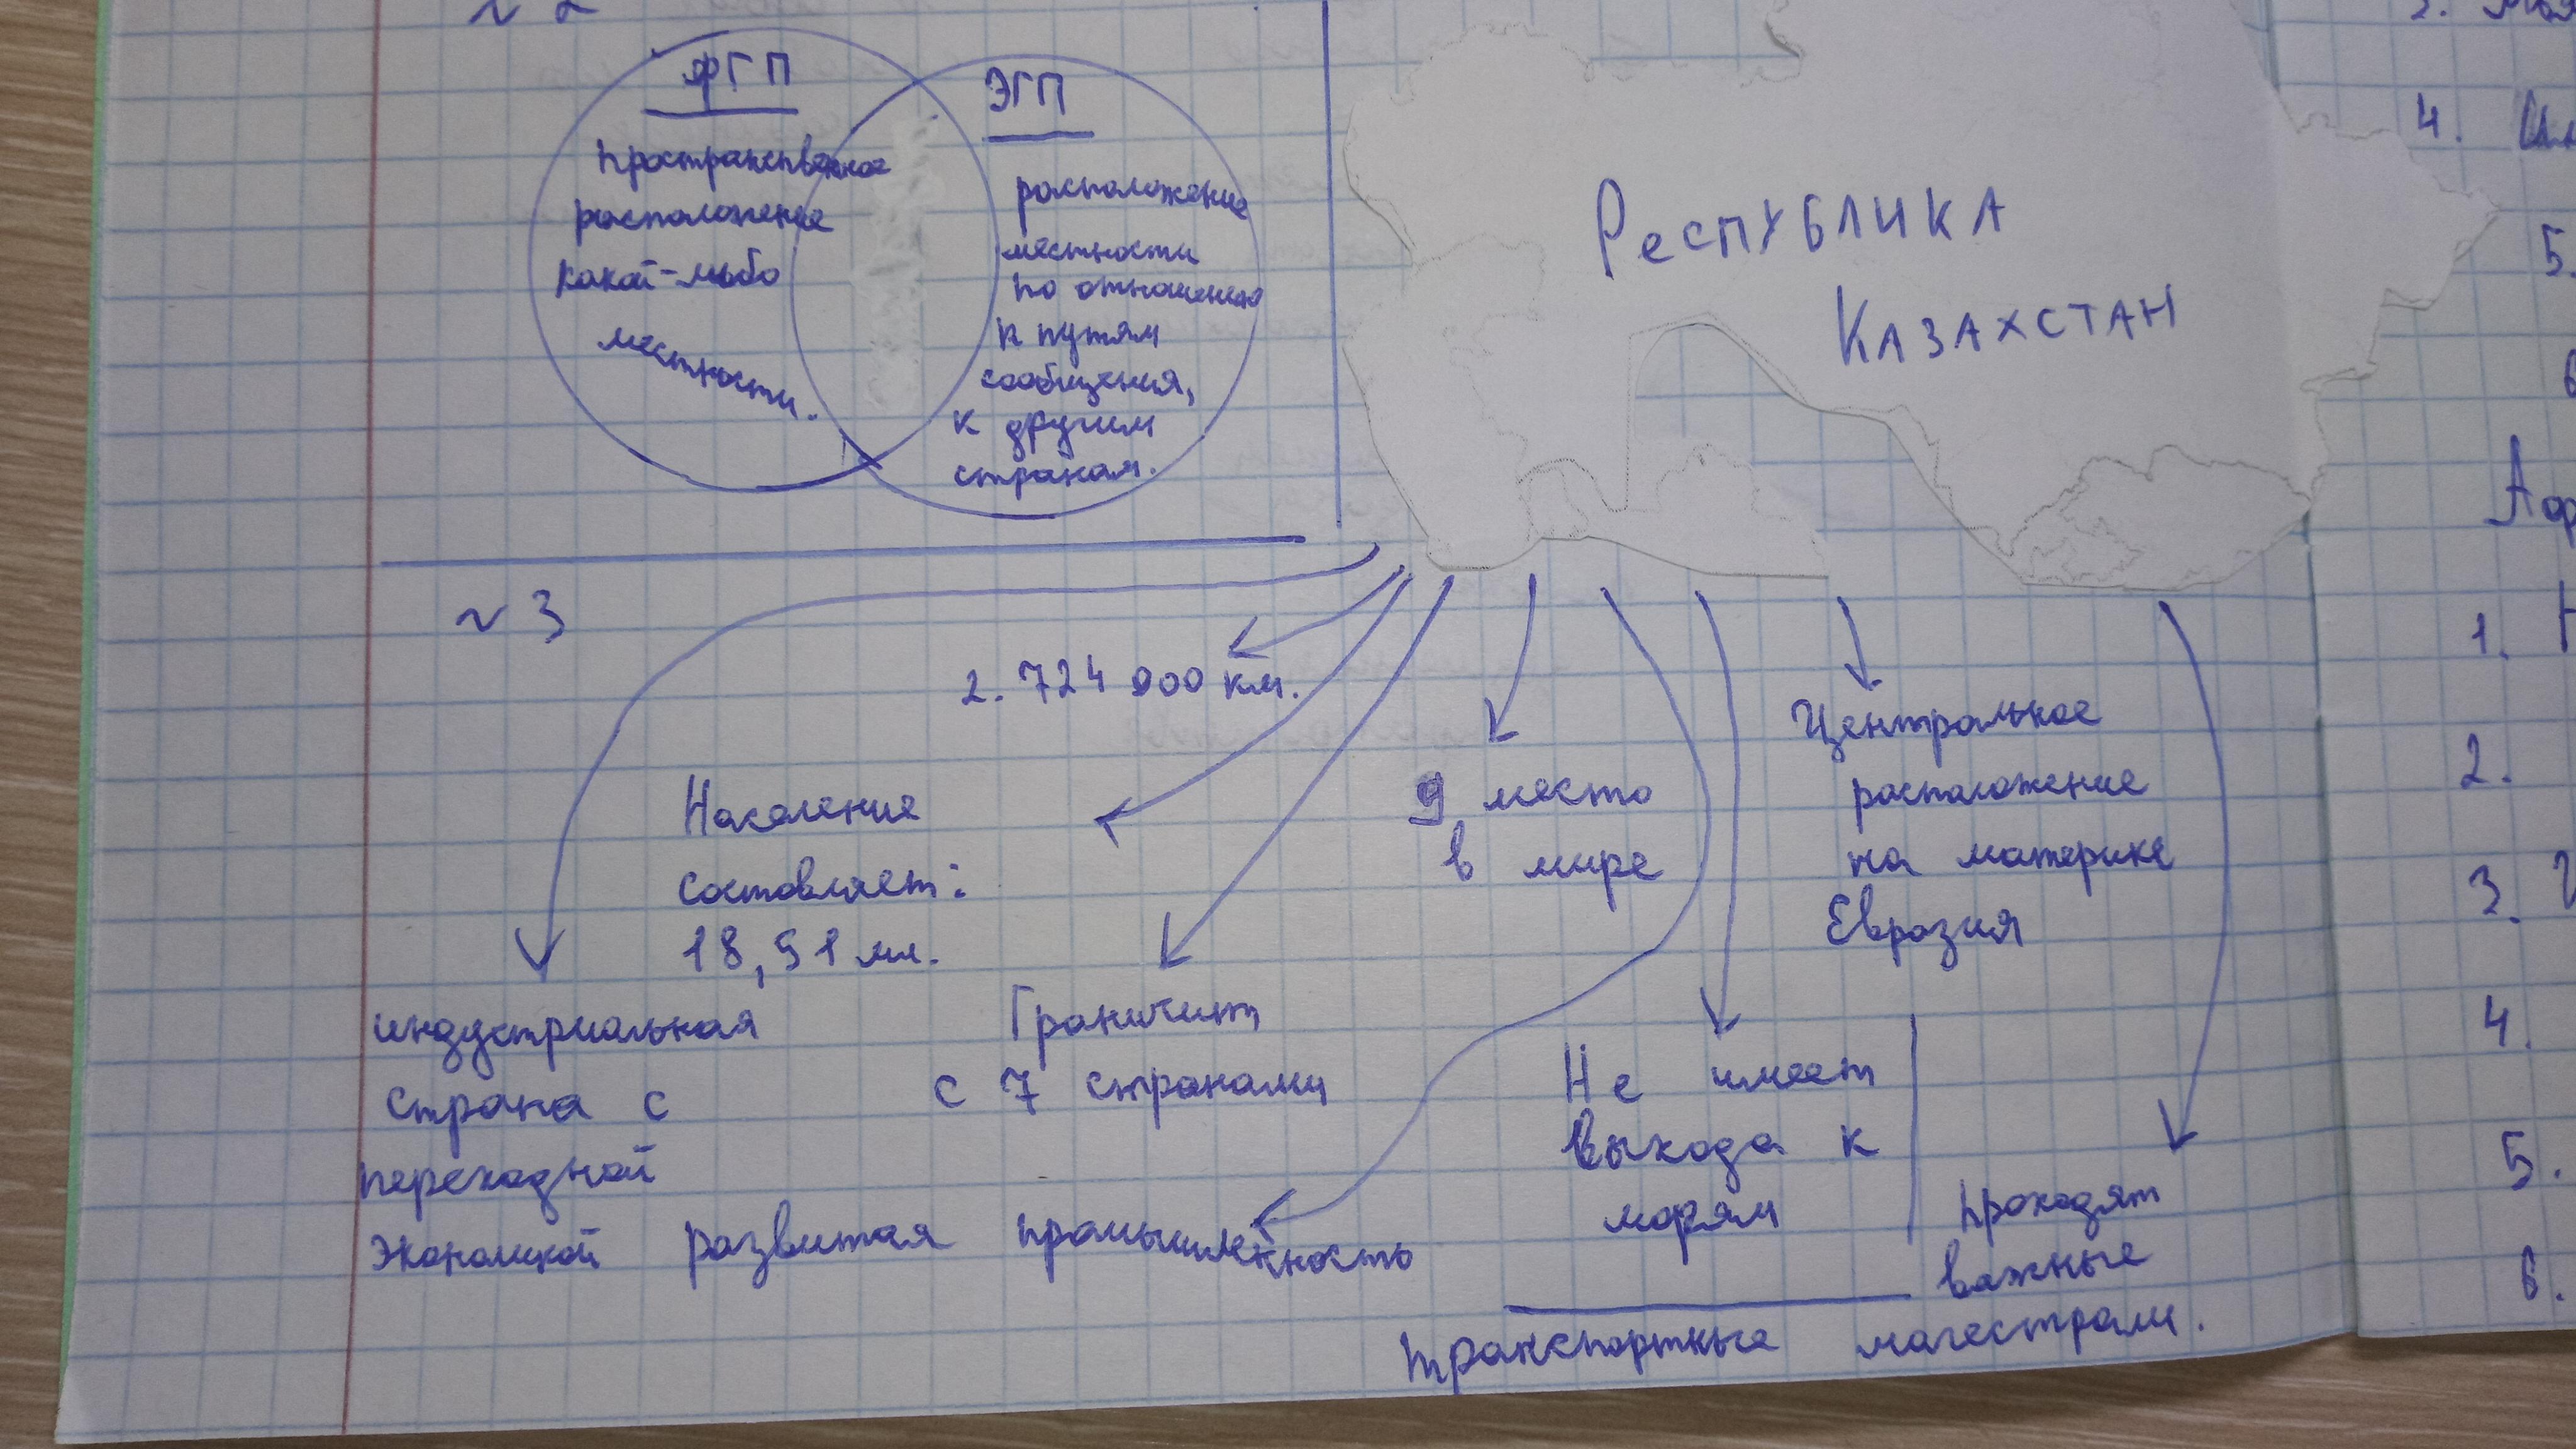 ~ 2
ФГП
пространственное
расположение
какой-либо
местности.
ЭГП
расположение
местности
по отношению
к путям
сообщения,
к другим
странам.
РеспУБЛИКА
КАЗАХСТАН
~ 3
2.724 000 км.
Население
состовляет:
18,51 мл.
индустриальная
страна с
переходной
экономикой
Граничит
с 7 странами
развитая промышленность
9 место
в мире
Не имеет
выхода к
морям
Центральное
расположение
на материке
Евразия
проходят
важные
транспортные магестрали.
4.
5.
6
1.
2.
3.
4.
5.
6.